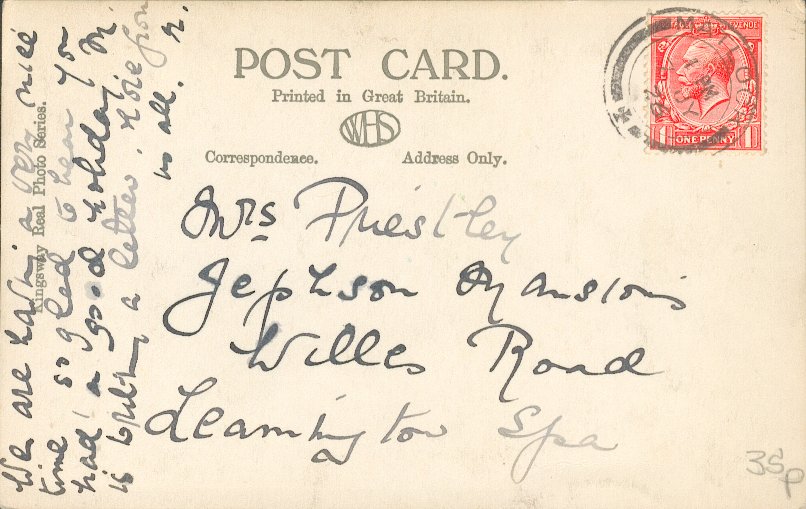 We are having a very nice
time so glad to hear you
had a good holiday. M.
is writing a letter. Love from
us all. R.
Kingsway Real Photo Series.
POST CARD.
Printed in Great Britain.
WHS
Correspondence.
Address Only.
MELROSE
1 PM
JY
28
REVENUE
1 ONE PENNY 1
Mrs Priestley
Jephson Mansions
Willes Road
Leamington Spa
35p